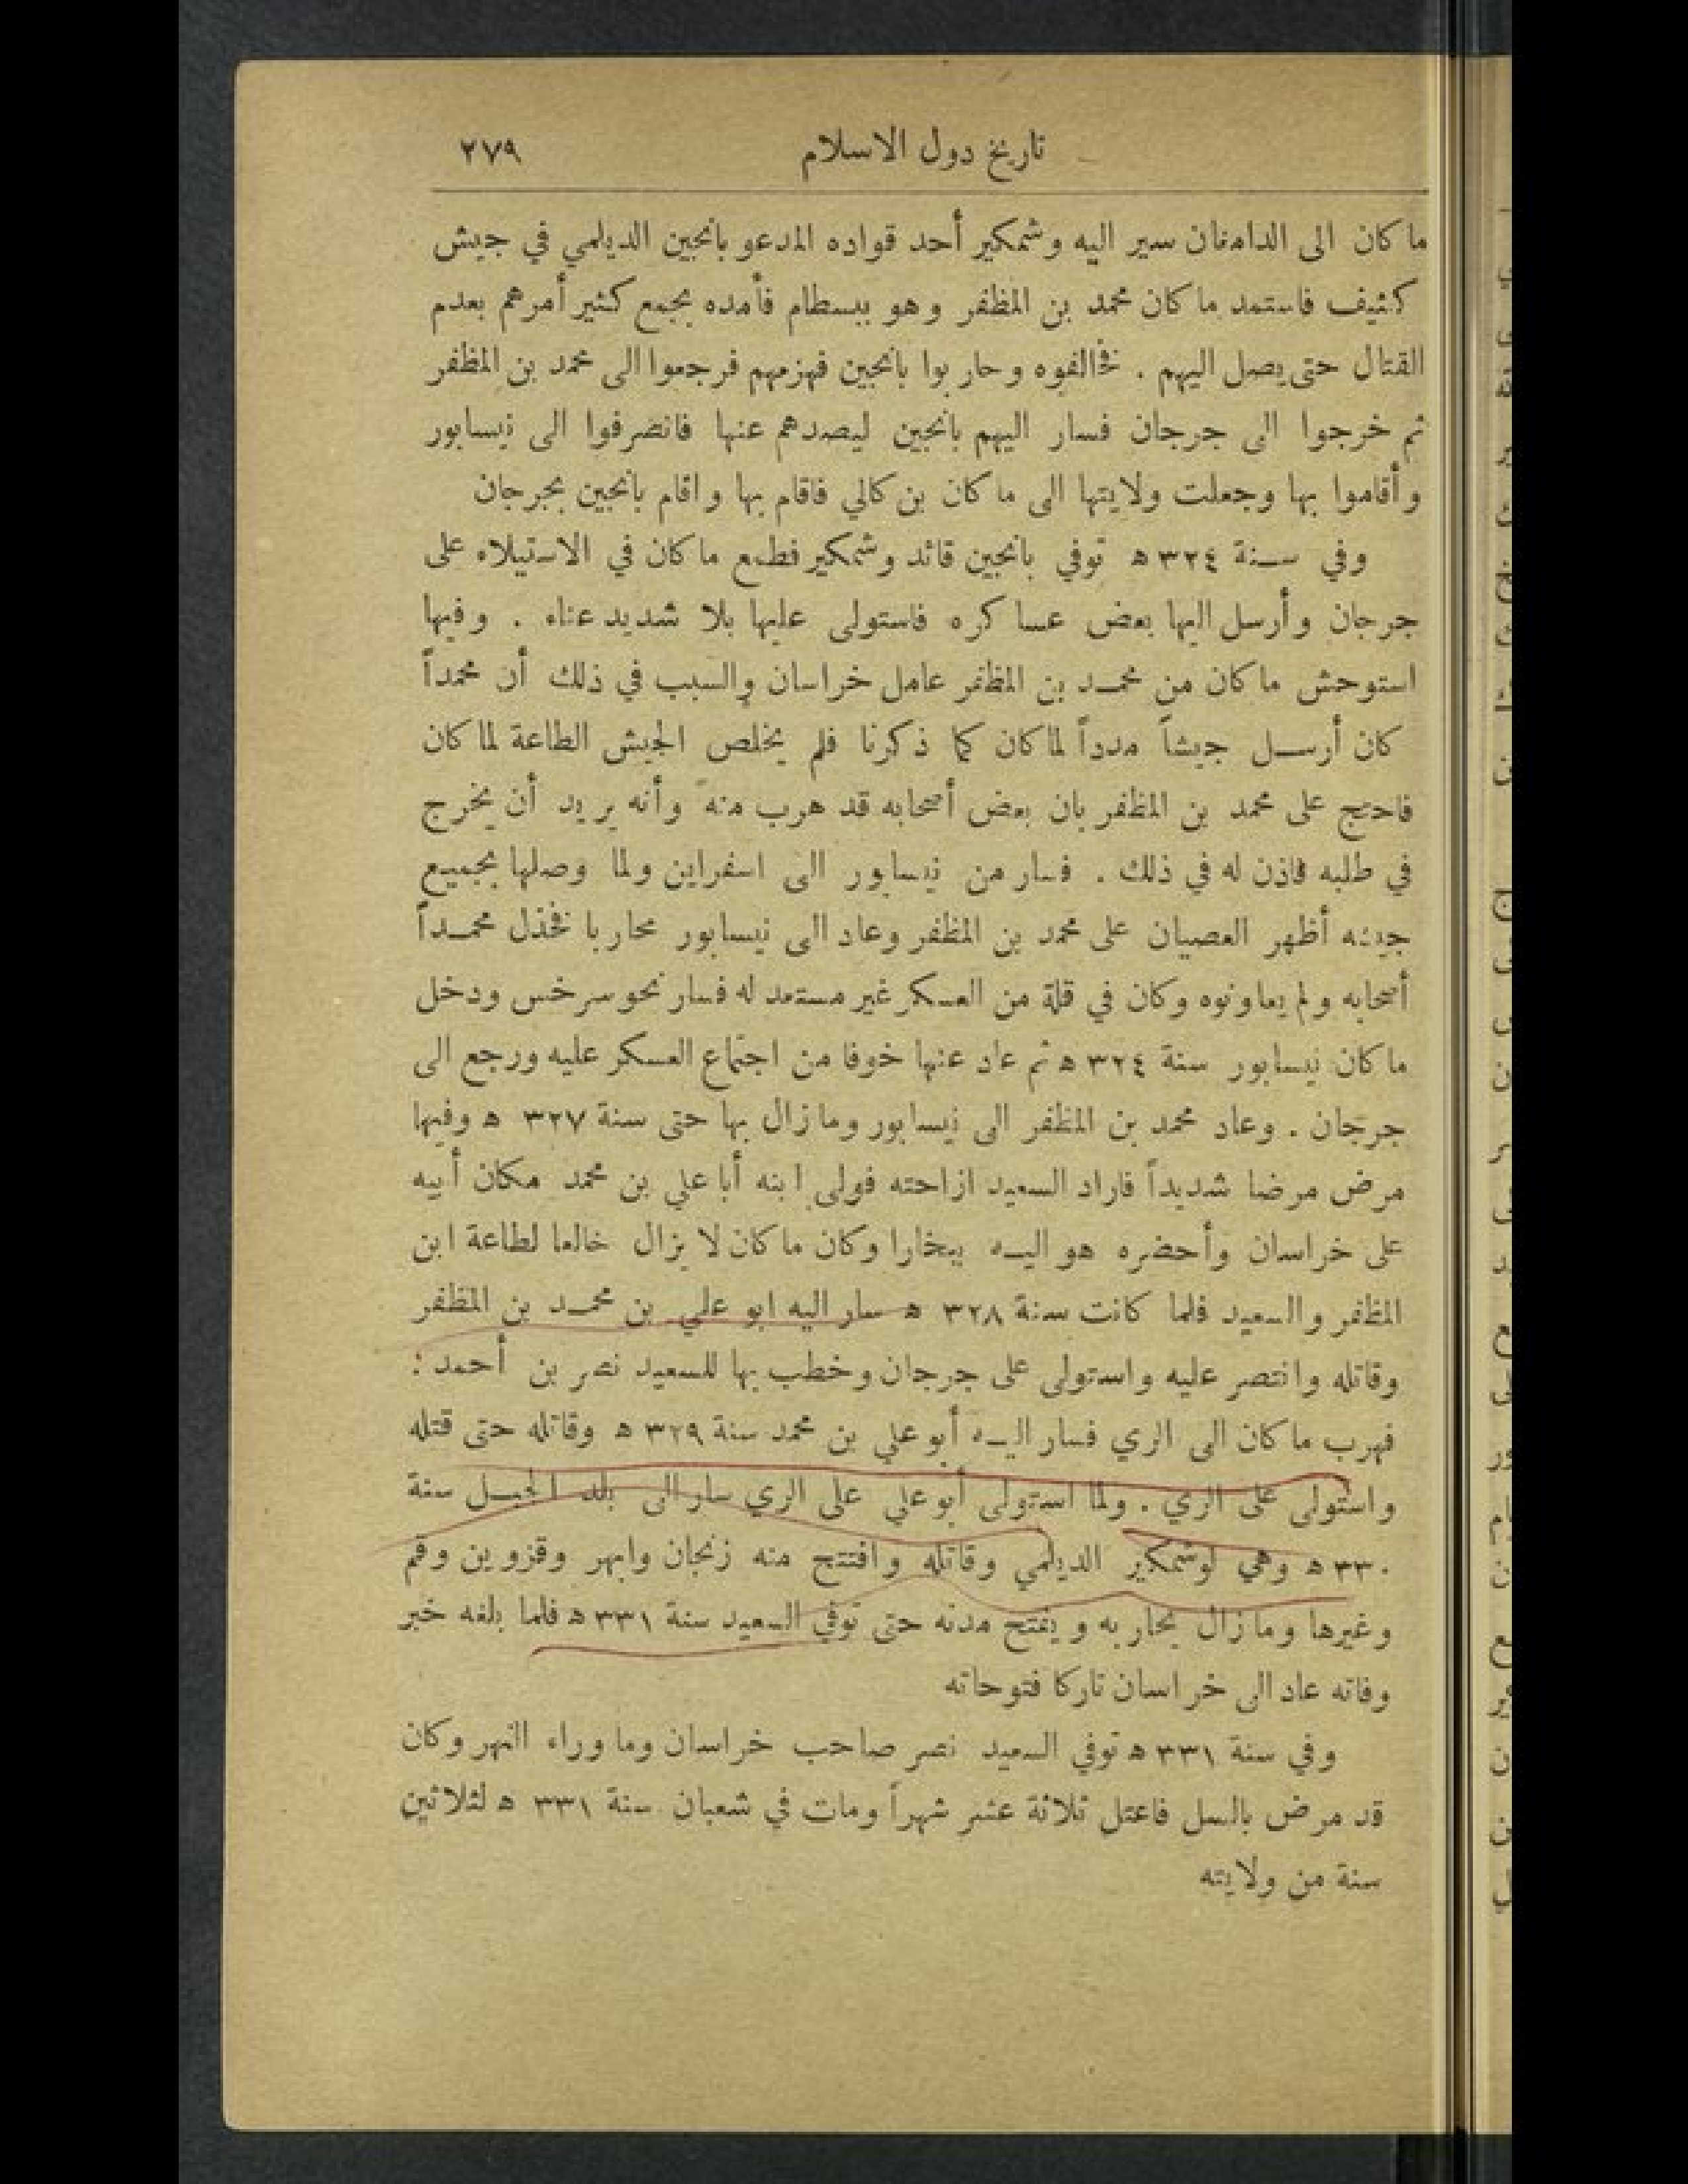 تاريخ دول الاسلام ٢٧٩
ما كان الى الدامغان سير اليه وشمكير أحد قواده المدعو بانجين الديلمي في جيش
كثيف فاستمد ما كان محمد بن المظفر وهو ببسطام فأمده بجمع كثير أمرهم بعدم
القتال حتى يصل اليهم . فخالفوه وحاربوا بانجين فهزمهم فرجعوا الى محمد بن المظفر
ثم خرجوا الى جرجان فسار اليهم بانجين ليصدهم عنها فانصرفوا الى نيسابور
وأقاموا بها وجعلت ولايتها الى ما كان بن كالي فاقام بها واقام بانجين بجرجان
وفي سنة ٣٢٤ ه توفي بانجين قائد وشمكير فطمع ما كان في الاستيلاء على
جرجان وأرسل اليها بعض عساكره فاستولى عليها بلا شديد عناء . وفيها
استوحش ما كان من محمد بن المظفر عامل خراسان والسبب في ذلك أن محمداً
كان أرسل جيشاً مدداً لما كان كما ذكرنا فلم يخلص الجيش الطاعة لما كان
فاحتج على محمد بن المظفر بان بعض أصحابه قد هرب منه وأنه يريد أن يخرج
في طلبه فاذن له في ذلك . فسار من نيسابور الى اسفراين ولما وصلها بجميع
جيشه أظهر العصيان على محمد بن المظفر وعاد الى نيسابور محاربا فخذل محمداً
أصحابه ولم يعاونوه وكان في قلة من العسكر غير مستعد له فسار نحو سرخس ودخل
ما كان نيسابور سنة ٣٢٤ ه ثم عاد عنها خوفا من اجتماع العسكر عليه ورجع الى
جرجان . وعاد محمد بن المظفر الى نيسابور وما زال بها حتى سنة ٣٢٧ ه وفيها
مرض مرضا شديداً فاراد السعيد ازاحته فولى ابنه أبا علي بن محمد مكان أبيه
على خراسان وأحضره هو اليه ببخارا وكان ما كان لا يزال خالعا لطاعة ابن
المظفر والسعيد فلما كانت سنة ٣٢٨ ه سار اليه ابو علي بن محمد بن المظفر
وقاتله وانتصر عليه واستولى على جرجان وخطب بها للسعيد نصر بن أحمد :
فهرب ما كان الى الري فسار اليه أبو علي بن محمد سنة ٣٢٩ ه وقاتله حتى قتله
واستولى على الري . ولما استولى أبو علي على الري سار الى بلد الجبل سنة
٣٣٠ ه وهي لوشمكير الديلمي وقاتله وافتتح منه زنجان وابهر وقزوين وقم
وغيرها وما زال يحاربه ويفتح مدنه حتى توفي السعيد سنة ٣٣١ ه فلما بلغه خبر
وفاته عاد الى خراسان تاركا فتوحاته
وفي سنة ٣٣١ ه توفي السعيد نصر صاحب خراسان وما وراء النهر وكان
قد مرض بالسل فاعتل ثلاثة عشر شهراً ومات في شعبان سنة ٣٣١ ه لثلاثين
سنة من ولايته